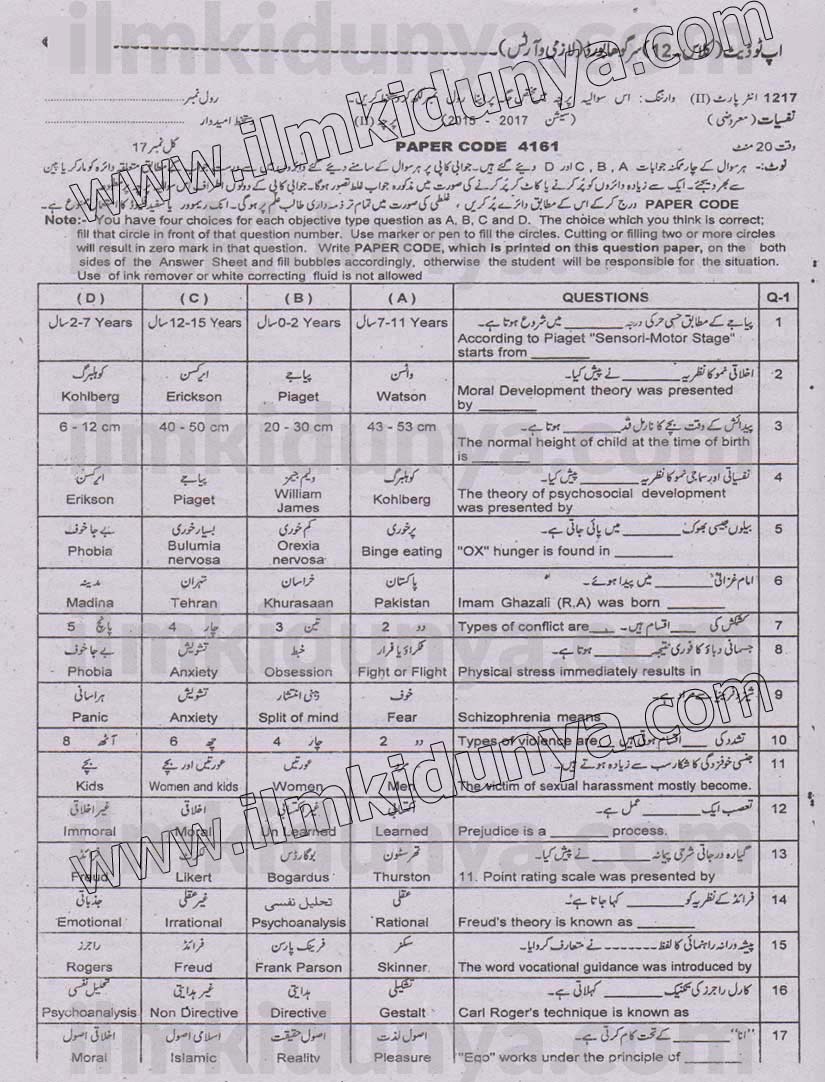 اپ ٹو ڈیٹ (کلاس ۔12) سرگودھا بورڈ (لازمی و آرٹس)
1217 انٹر پارٹ (II) وارننگ: اس سوالیہ پرچہ میں مختص جگہ پر اپنا رول نمبر لکھ کر دستخط کریں۔ رول نمبر
نفسیات (معروضی) (سیشن 2017 - 2015) پرچہ (II) دستخط امیدوار
وقت 20 منٹ PAPER CODE 4161 کل نمبر 17
نوٹ:- ہر سوال کے چار ممکنہ جوابات C , B , A اور D دیئے گئے ہیں۔ جوابی کاپی پر ہر سوال کے سامنے دیئے گئے دائروں میں سے درست جواب کے مطابق متعلقہ دائرہ کو مارکر یا پین
سے بھر دیجئے۔ ایک سے زیادہ دائروں کو پُر کرنے یا کاٹ کر پُر کرنے کی صورت میں مذکورہ جواب غلط تصور ہوگا۔ جوابی کاپی کے دونوں اطراف
PAPER CODE درج کر کے اس کے مطابق دائرے پُر کریں ، غلطی کی صورت میں تمام تر ذمہ داری طالب علم پر ہوگی۔ انک ریموور یا سفید فلیوڈ کا استعمال ممنوع ہے۔
Note:- You have four choices for each objective type question as A, B, C and D. The choice which you think is correct;
fill that circle in front of that question number. Use marker or pen to fill the circles. Cutting or filling two or more circles
will result in zero mark in that question. Write PAPER CODE, which is printed on this question paper, on the both
sides of the Answer Sheet and fill bubbles accordingly, otherwise the student will be responsible for the situation.
Use of ink remover or white correcting fluid is not allowed
( D ) ( C ) ( B ) ( A ) QUESTIONS Q-1
2-7 Years سال 12-15 Years سال 0-2 Years سال 7-11 Years سال پیاجے کے مطابق حسی حرکی درجہ ______ میں شروع ہوتا ہے۔ 1
According to Piaget "Sensori-Motor Stage"
starts from ______
کوہلبرگ ایرکسن پیاجے واٹسن اخلاقی نمو کا نظریہ ______ نے پیش کیا۔ 2
Kohlberg Erickson Piaget Watson Moral Development theory was presented
by ______
6 - 12 cm 40 - 50 cm 20 - 30 cm 43 - 53 cm پیدائش کے وقت بچے کا نارمل قد ______ ہوتا ہے۔ 3
The normal height of child at the time of birth
is ______
ایرکسن پیاجے ولیم جیمز کوہلبرگ نفسیاتی اور سماجی نمو کا نظریہ ______ پیش کیا۔ 4
Erikson Piaget William James Kohlberg The theory of psychosocial development
was presented by
بے جا خوف بسیار خوری کم خوری پُر خوری بیلوں جیسی بھوک ______ میں پائی جاتی ہے۔ 5
Phobia Bulumia nervosa Orexia nervosa Binge eating "OX" hunger is found in ______
مدینہ تہران خراسان پاکستان امام غزالیؒ ______ میں پیدا ہوئے۔ 6
Madina Tehran Khurasaan Pakistan Imam Ghazali (R.A) was born ______
پانچ 5 چار 4 تین 3 دو 2 Types of conflict are___ کشمکش کی ___ اقسام ہیں۔ 7
بے جا خوف تشویش خبط فکراؤ یا فرار جسمانی دباؤ کا فوری نتیجہ ______ ہوتا ہے۔ 8
Phobia Anxiety Obsession Fight or Flight Physical stress immediately results in
ہراسانی تشویش ذہنی انتشار خوف 9
Panic Anxiety Split of mind Fear Schizophrenia means
آٹھ 8 چھ 6 چار 4 دو 2 Types of violence are___ تشدد کی ___ اقسام ہوتی ہیں 10
بچے عورتیں اور بچے عورتیں مرد جنسی خوفزدگی کا شکار سب سے زیادہ ہوتے ہیں۔ 11
Kids Women and kids Women Men The victim of sexual harassment mostly become.
غیر اخلاقی اخلاقی غیر اکتسابی اکتسابی تعصب ایک ______ عمل ہے۔ 12
Immoral Moral Un Learned Learned Prejudice is a ______ process.
فرائڈ لیکرٹ بوگارڈس تھرسٹون گیارہ درجاتی شرحی پیمانہ ______ نے پیش کیا۔ 13
Freud Likert Bogardus Thurston 11. Point rating scale was presented by
جذباتی غیر عقلی تحلیل نفسی عقلی فرائڈ کے نظریہ کو ______ کہا جاتا ہے۔ 14
Emotional Irrational Psychoanalysis Rational Freud's theory is known as ______
راجرز فرائڈ فرینک پارسن سکنر پیشہ ورانہ راہنمائی کا لفظ ------- نے متعارف کروایا۔ 15
Rogers Freud Frank Parson Skinner The word vocational guidance was introduced by
تحلیل نفسی غیر ہدایتی ہدایتی تشکیلی کارل راجرز کی تکنیک ______ کہلاتی ہے۔ 16
Psychoanalysis Non Directive Directive Gestalt Carl Roger's technique is known as
اخلاقی اصول اسلامی اصول اصول حقیقت اصول لذت "انا" ______ کے تحت کام کرتی ہے۔ 17
Moral Islamic Reality Pleasure "Ego" works under the principle of ______
www.ilmkidunya.com
www.ilmkidunya.com
ilmkidunya.com